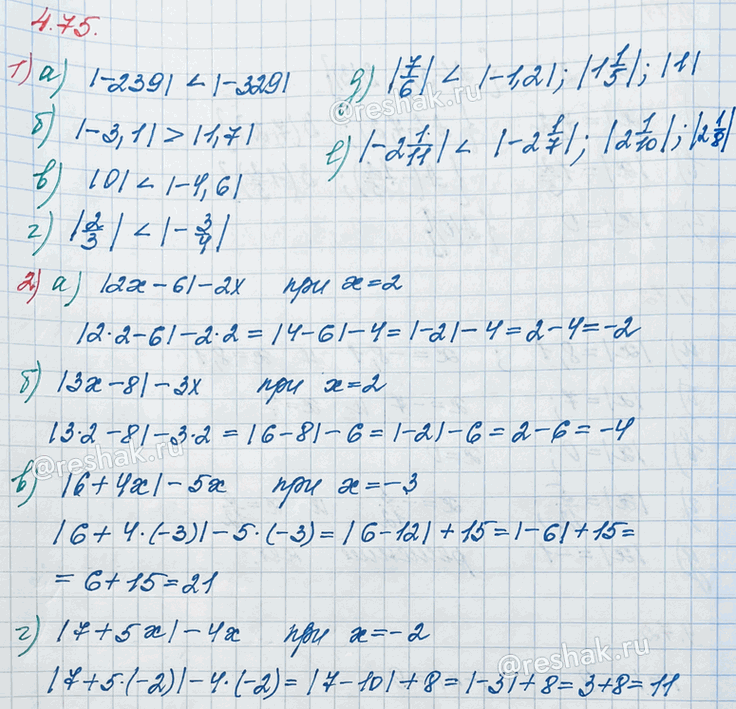 4.75.
1) а) |-239| < |-329|
б) |-3,1| > |1,7|
в) |0| < |-4,6|
г) |2/3| < |-3/4|
д) |7/6| < |-1,2|; |1 1/5|; |1|
е) |-2 1/11| < |-2 1/7|; |2 1/10|; |2 1/8|
2) а) |2x-6|-2x при x=2
|2·2-6|-2·2=|4-6|-4=|-2|-4=2-4=-2
б) |3x-8|-3x при x=2
|3·2-8|-3·2=|6-8|-6=|-2|-6=2-6=-4
в) |6+4x|-5x при x=-3
|6+4·(-3)|-5·(-3)=|6-12|+15=|-6|+15=
=6+15=21
г) |7+5x|-4x при x=-2
|7+5·(-2)|-4·(-2)=|7-10|+8=|-3|+8=3+8=11
@reshak.ru
@reshak.ru
@reshak.ru